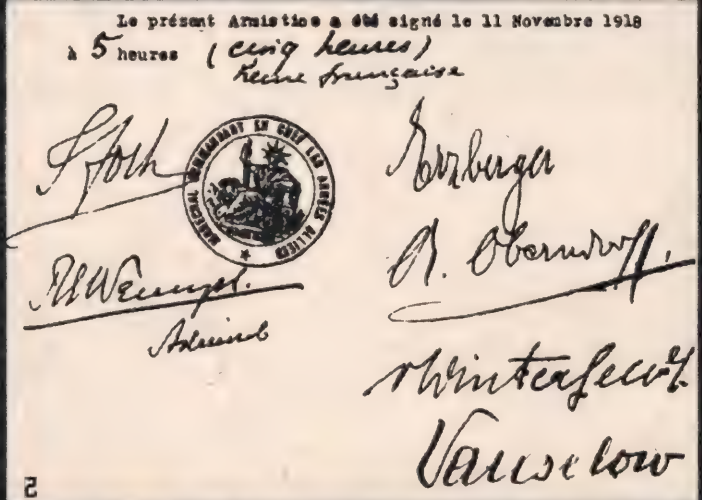 Le présent Armistice a été signé le 11 Novembre 1918
à 5 heures (cinq heures)
heure française
F Foch
MARÉCHAL COMMANDANT EN CHEF LES ARMÉES ALLIÉES
R.E. Wemyss.
Admiral
Erzberger
A. Oberndorff.
vWinterfeldt
Vanselow